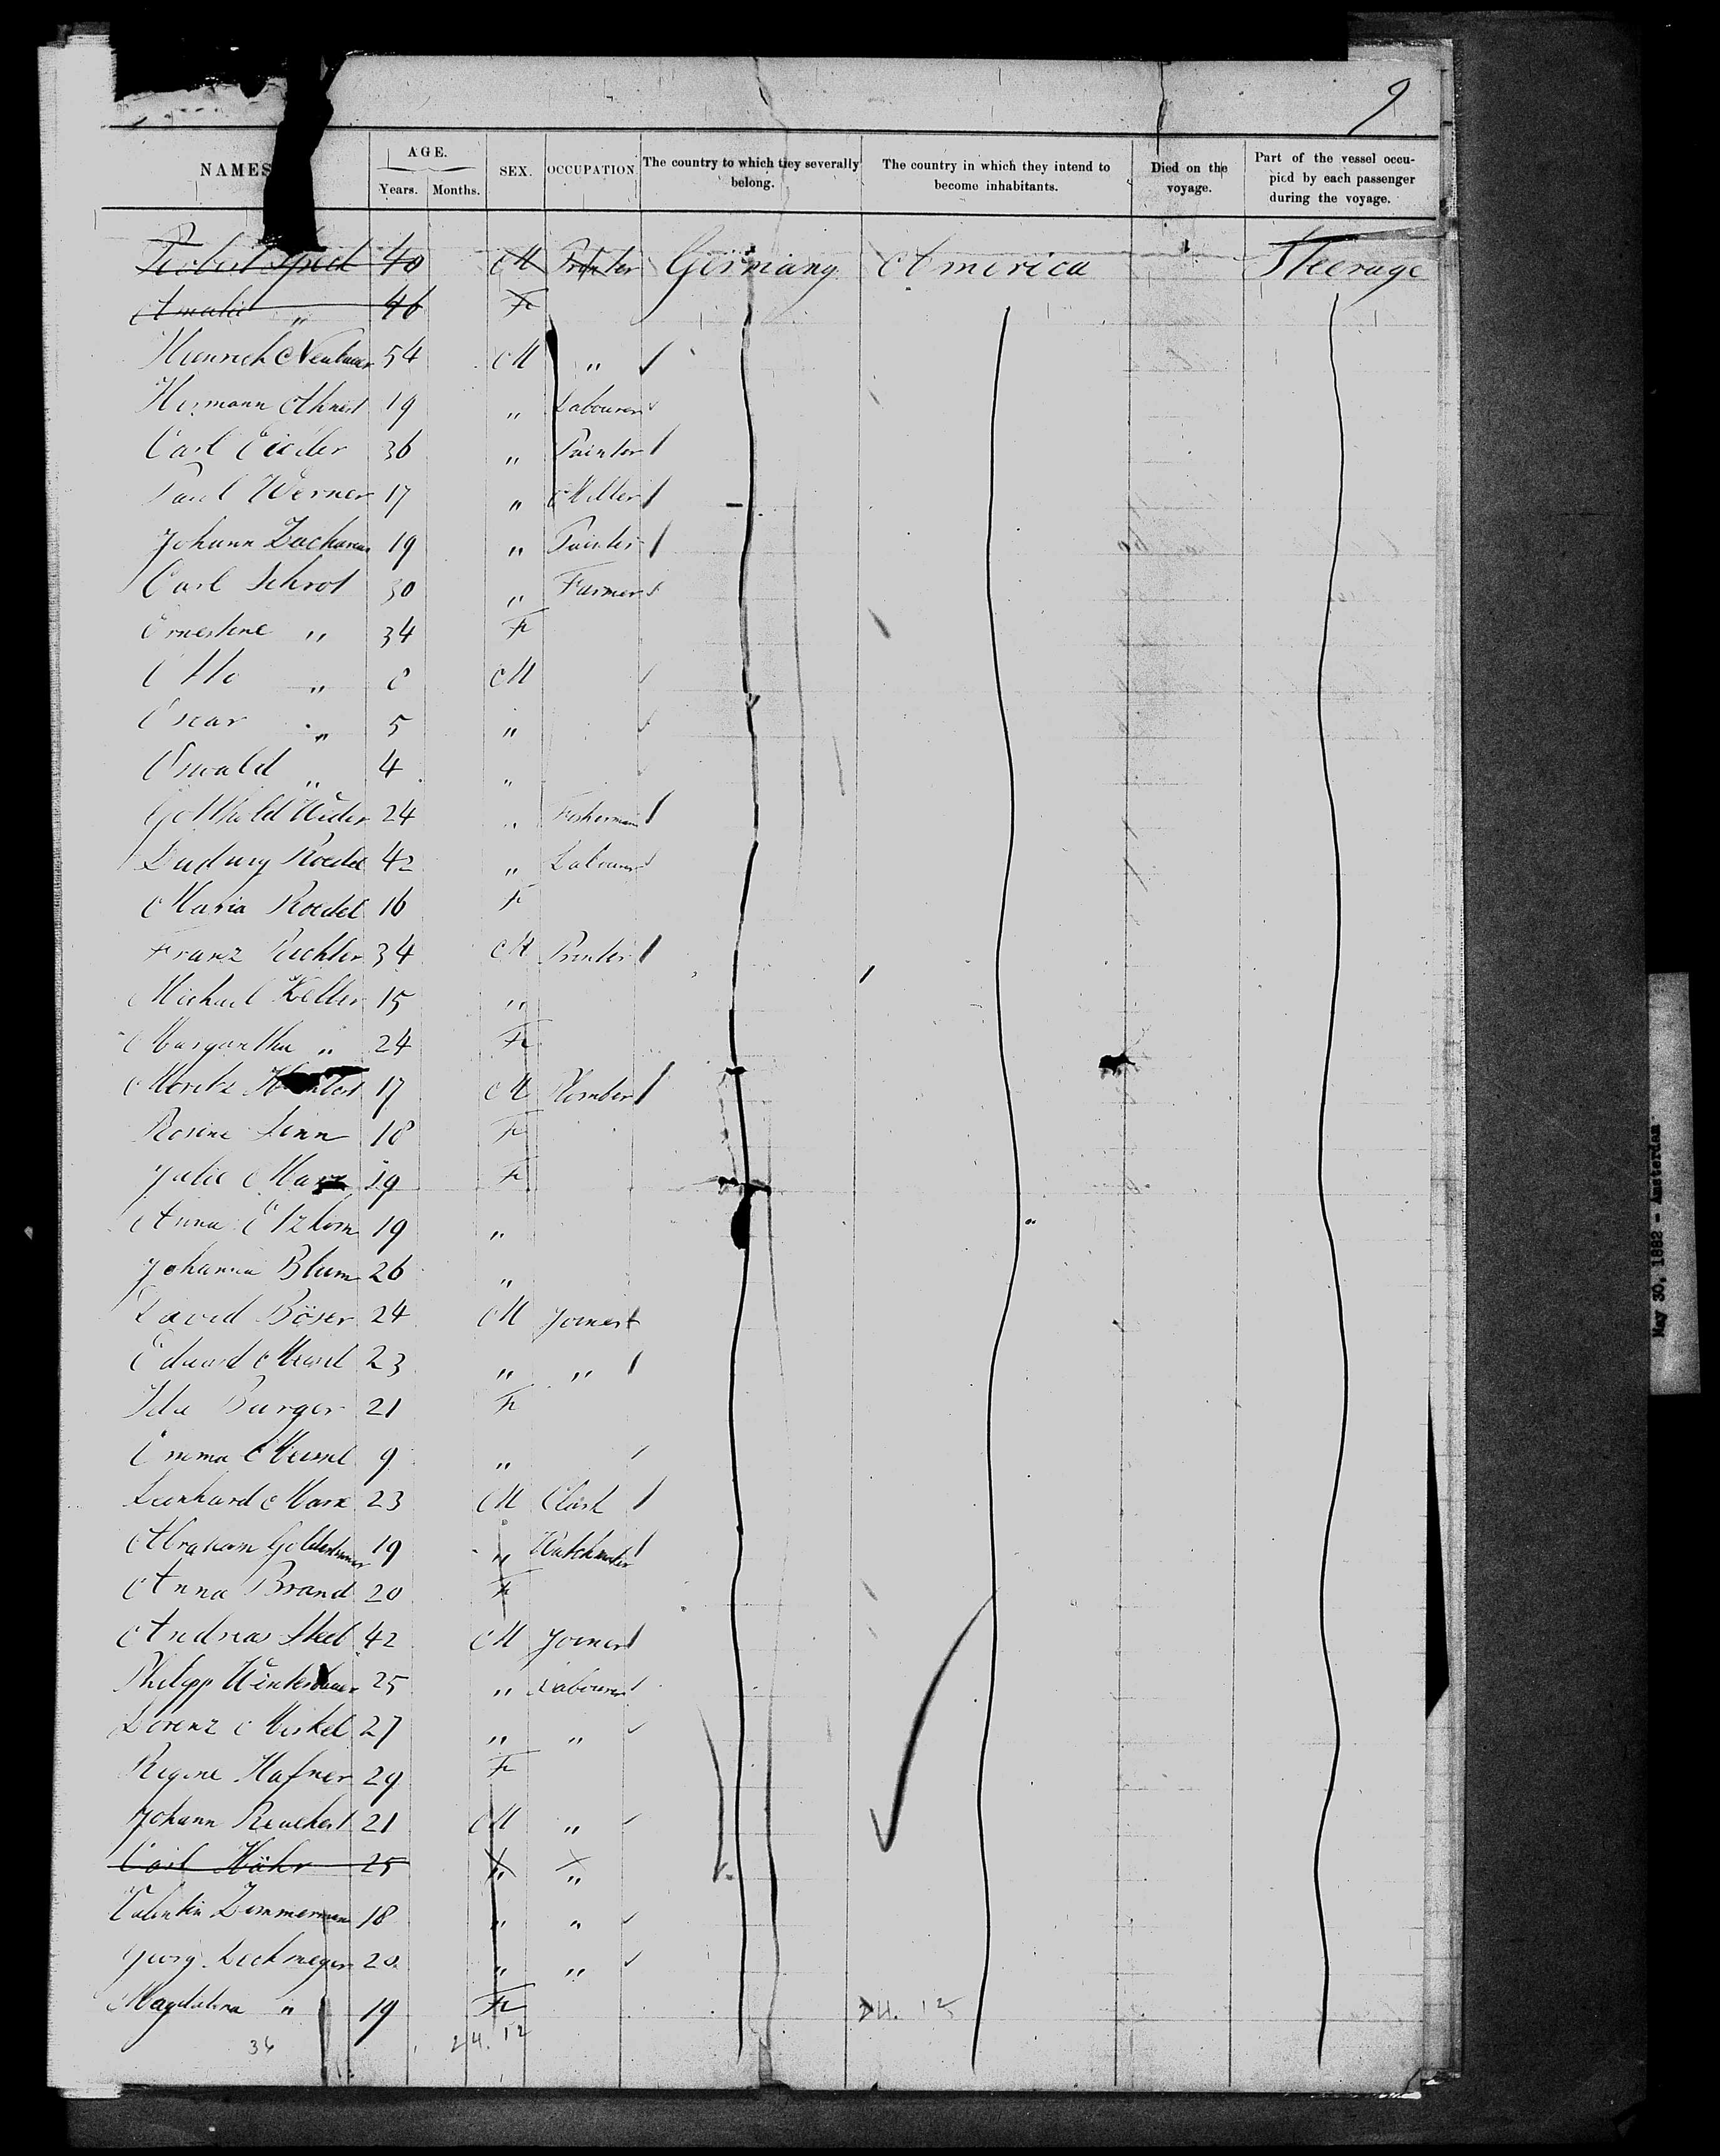 9
NAMES AGE. SEX. OCCUPATION. The country to which they severally belong. The country in which they intend to become inhabitants. Died on the voyage. Part of the vessel occupied by each passenger during the voyage.
Years. Months.
Robert Speck 40 M Printer Germany America Steerage
Amalie " 46 F
Heinrich 54 M "
Hermann 19 " Labourer
Carl 36 " Painter
Paul Werner 17 " Miller
Johann Zacharias 19 " Painter
Carl Schrot 30 " Farmer
Ernestine " 34 F
Otto " M
Oscar " 5 "
Oswald " 4 "
Gotthold 24 " Fisherman
Ludwig Roedel 42 " Labourer
Maria Roedel 16 F
Franz 34 M Printer
Michael Keller 15 "
Margaretha " 24 F
Moritz 17 M Plomber
Rosine 18 F
Julie 19 F
Anna Etzkorn 19 "
Johanna Blum 26 "
David Böser 24 M Joiner
Eduard Meisel 23 " "
Ida Burger 21 F
Emma Meisel 9 "
Leonhard 23 M Clerk
Abraham 19 " Watchmaker
Anna Brand 20 F
Andreas 42 M Joiner
Philipp 25 " Labourer
Lorenz Merkel 27 " "
Regine Hafner 29 F
Johann 21 M "
Carl Höhr 25 " "
Valentin Zimmermann 18 " "
Georg 20 " "
Magdalena " 19 F
36 24. 12 24. 12
May 30, 1882 - Amsterdam